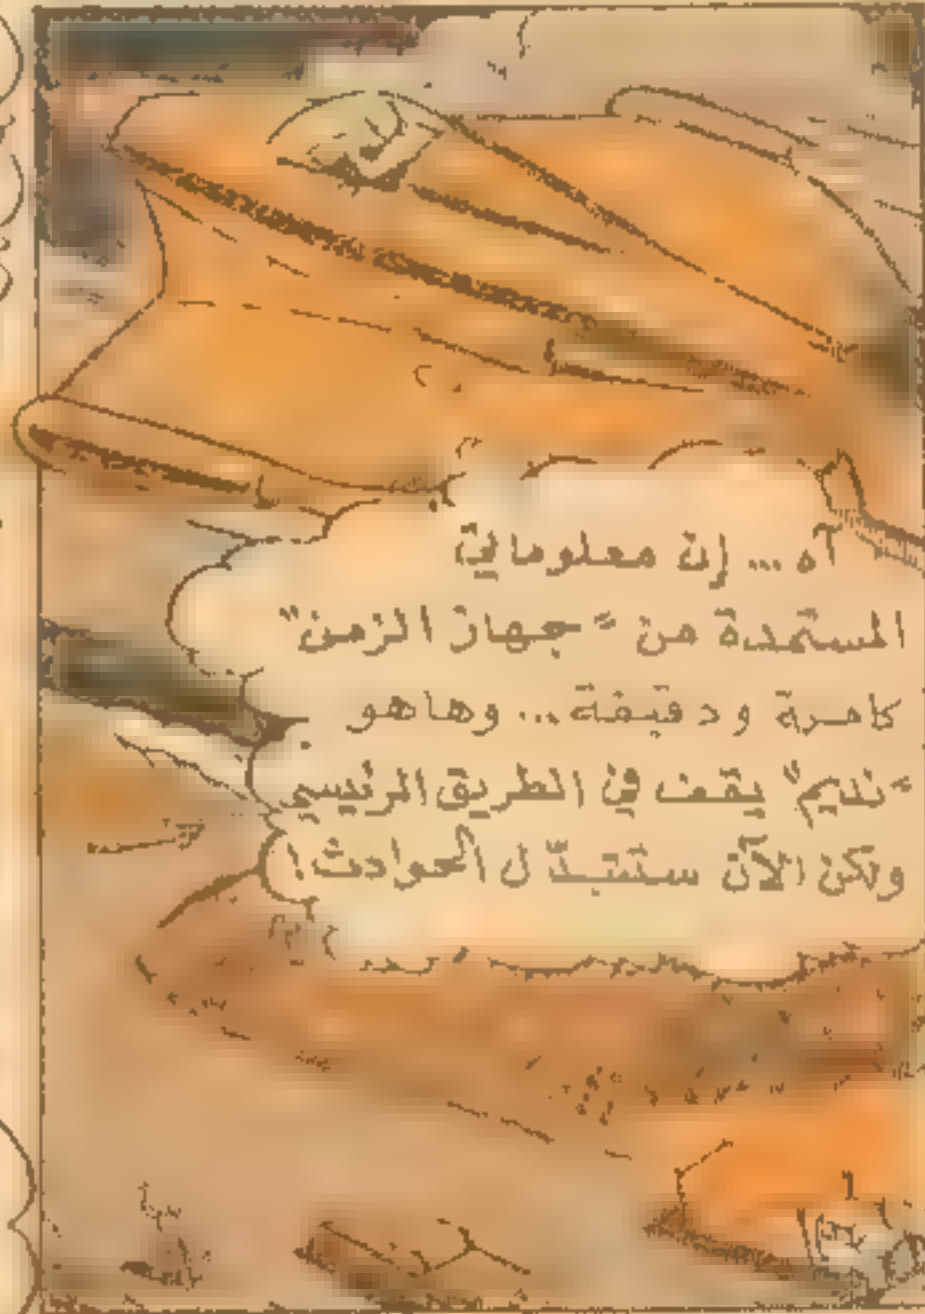 آه ... إن معلوماتي
المستمدة من "جهاز الزمن"
كاملة ودقيقة ... وهاهو
"نديم" يقف في الطريق الرئيسي
ولكن الآن ستتبدّل الحوادث!